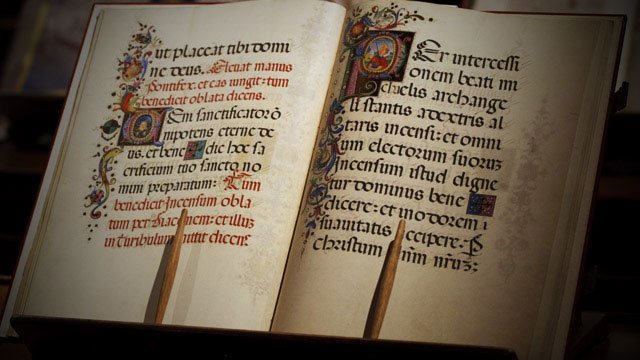 ut placeat tibi domi
ne deus. Eleuat manus
Pontifex, et eas ungit: tum
benedicit oblata dicens.
Ueni sanctificator ō
nipotens eterne de
us, et bene dic hoc sa
crificium tuo sancto no
mini preparatum: Tum
benedicit incensum obla
tum per Diaconem: et illuz
in turibulum mittit dicens.
Per intercessi
onem beati mi
chaelis archange
li stantis a dextris al
taris incensi: et omni
um electorum suoruz
incensum istud digne
tur dominus bene
dicere: et in odorem
suauitatis accipere. P
christum nrūz: